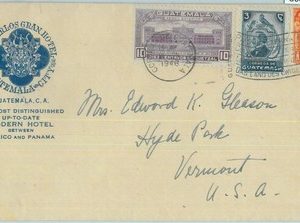 CARLOS GRAN HOTEL
GUATEMALA-CITY
GUATEMALA, C.A.
MOST DISTINGUISHED
UP-TO-DATE
MODERN HOTEL
BETWEEN
MEXICO AND PANAMA
GUATEMALA
10
10
3
GUATEMALA
Mrs. Edward K. Gleason
Hyde Park
Vermont
U.S.A.